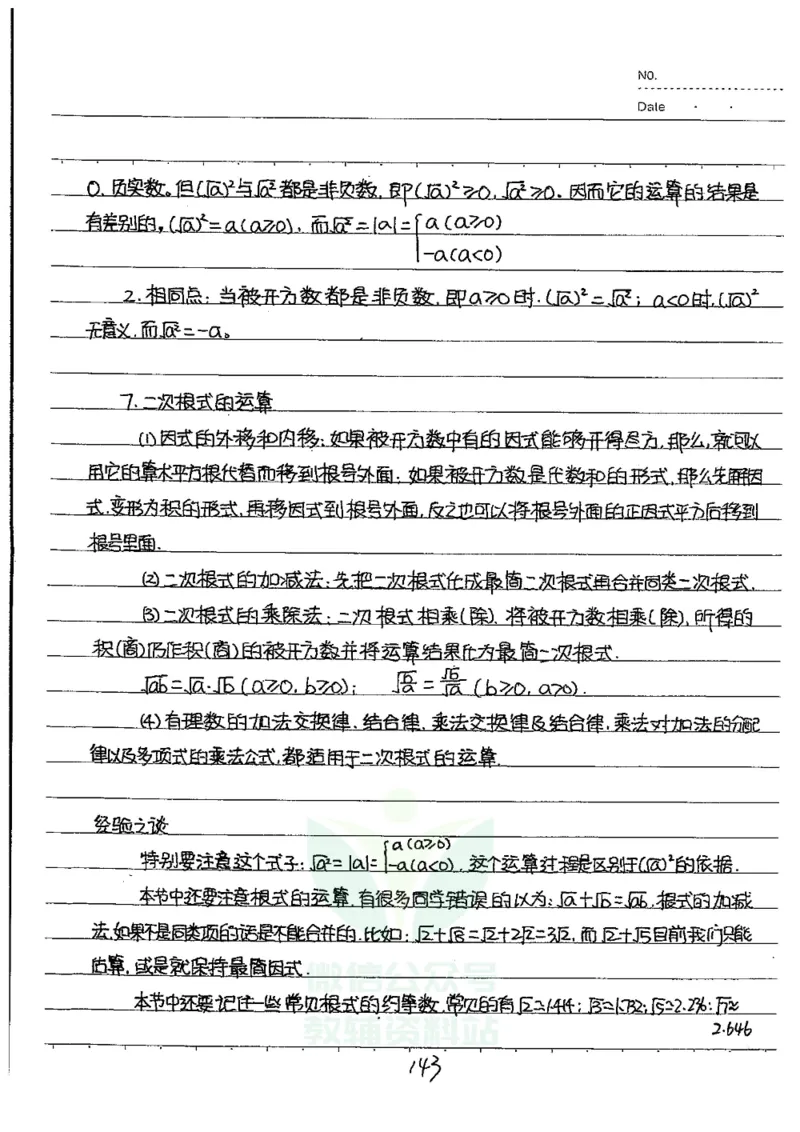 NO.
Date
0.负实数。但(√a)²与√a²都是非负数,即(√a)²≥0,√a²≥0。因而它的运算的结果是
有差别的,(√a)²=a(a≥0),而√a²=|a|={a(a≥0)
-a(a<0)
2.相同点:当被开方数都是非负数,即a≥0时,(√a)²=√a²;a<0时,(√a)²
无意义,而√a²=-a。
7.二次根式的运算
(1)因式的外移和内移:如果被开方数中有的因式能够开得尽方,那么,就可以
用它的算术平方根代替而移到根号外面;如果被开方数是代数和的形式,那么先解因
式,变形为积的形式,再移因式到根号外面,反之也可以将根号外面的正因式平方后移到
根号里面.
(2)二次根式的加减法:先把二次根式化成最简二次根式再合并同类二次根式.
(3)二次根式的乘除法:二次根式相乘(除),将被开方数相乘(除),所得的
积(商)仍作积(商)的被开方数并将运算结果化为最简二次根式.
√ab=√a·√b(a≥0,b≥0); √(b/a)=√b/√a(b≥0,a>0).
(4)有理数的加法交换律、结合律,乘法交换律及结合律,乘法对加法的分配
律以及多项式的乘法公式,都适用于二次根式的运算.
经验之谈
特别要注意这个式子:√a²=|a|={a(a≥0) -a(a<0),这个运算过程是区别于(√a)²的依据.
本节中还要注意根式的运算,有很多同学错误的以为:√a+√b=√ab,根式的加减
法,如果不是同类项的话是不能合并的,比如:√2+√8=√2+2√2=3√2,而√2+√5目前我们只能
估算,或是就保持最简因式.
本节中还要记住一些常见根式的约等数,常见的有√2≈1.414;√3≈1.732;√5≈2.236;√7≈
2.646
143
微信公众号
教辅资料站